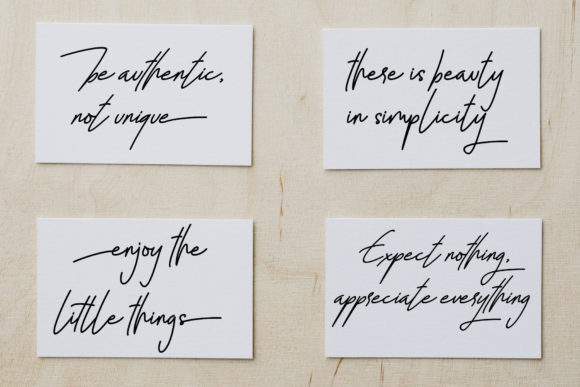 be authentic,
not unique
there is beauty
in simplicity
enjoy the
little things
Expect nothing,
appreciate everything